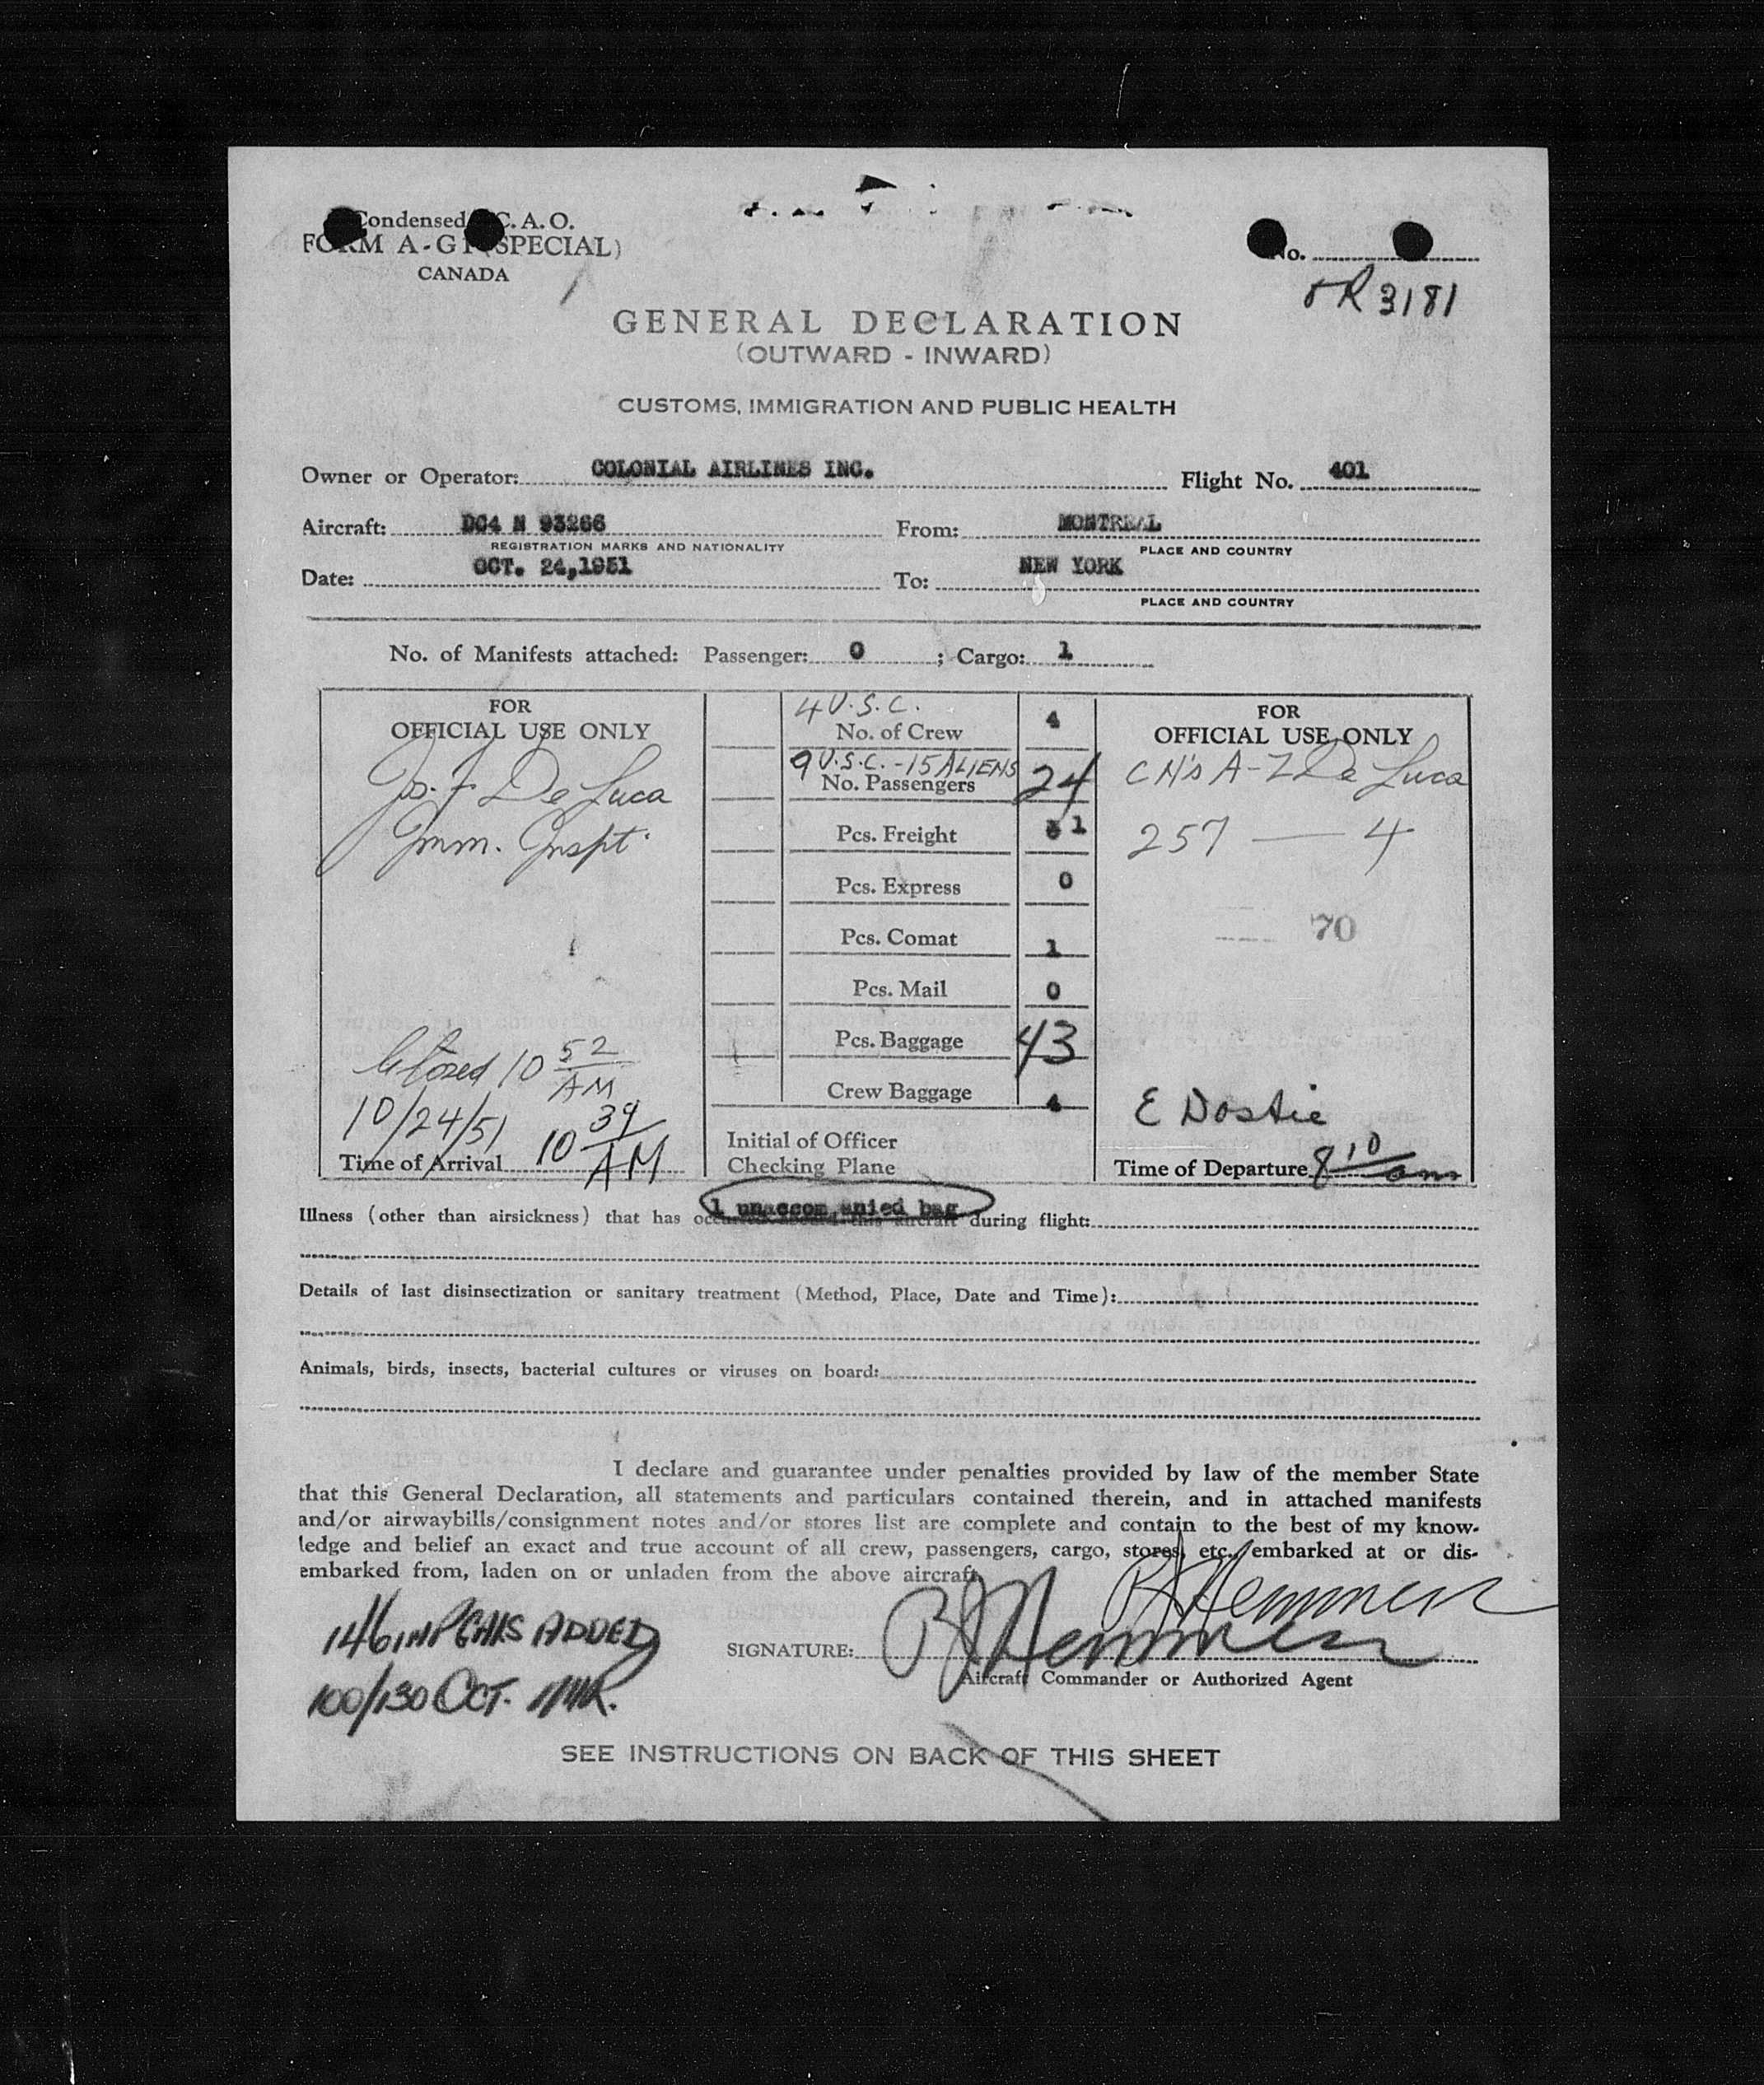 Condensed C. A. O.
FORM A-G1 (SPECIAL)
CANADA
No.
R 3181
GENERAL DECLARATION
(OUTWARD - INWARD)
CUSTOMS, IMMIGRATION AND PUBLIC HEALTH
Owner or Operator: COLONIAL AIRLINES INC. Flight No. 401
Aircraft: DC4 N 93266 From: MONTREAL
REGISTRATION MARKS AND NATIONALITY PLACE AND COUNTRY
Date: OCT. 24,1951 To: NEW YORK
PLACE AND COUNTRY
No. of Manifests attached: Passenger: 0 ; Cargo: 1
FOR
OFFICIAL USE ONLY
Jos. F De Luca
Imm. Inspt.
Closed 10 52 AM
10/24/51 10 39 AM
Time of Arrival
4 U.S.C.
No. of Crew 4
9 U.S.C. - 15 ALIENS
No. Passengers 24
Pcs. Freight 1
Pcs. Express 0
Pcs. Comat 1
Pcs. Mail 0
Pcs. Baggage 43
Crew Baggage 4
Initial of Officer
Checking Plane
FOR
OFFICIAL USE ONLY
CN's A-Z De Luca
257 — 4
70
E Dostie
Time of Departure 8 10 am
1 unaccom anied bag
Illness (other than airsickness) that has occurred aboard this aircraft during flight:
Details of last disinsectization or sanitary treatment (Method, Place, Date and Time):
Animals, birds, insects, bacterial cultures or viruses on board:
I declare and guarantee under penalties provided by law of the member State
that this General Declaration, all statements and particulars contained therein, and in attached manifests
and/or airwaybills/consignment notes and/or stores list are complete and contain to the best of my know-
ledge and belief an exact and true account of all crew, passengers, cargo, stores, etc., embarked at or dis-
embarked from, laden on or unladen from the above aircraft.
146 IMP GALS ADDED
100/130 OCT.
SIGNATURE:
Aircraft Commander or Authorized Agent
SEE INSTRUCTIONS ON BACK OF THIS SHEET